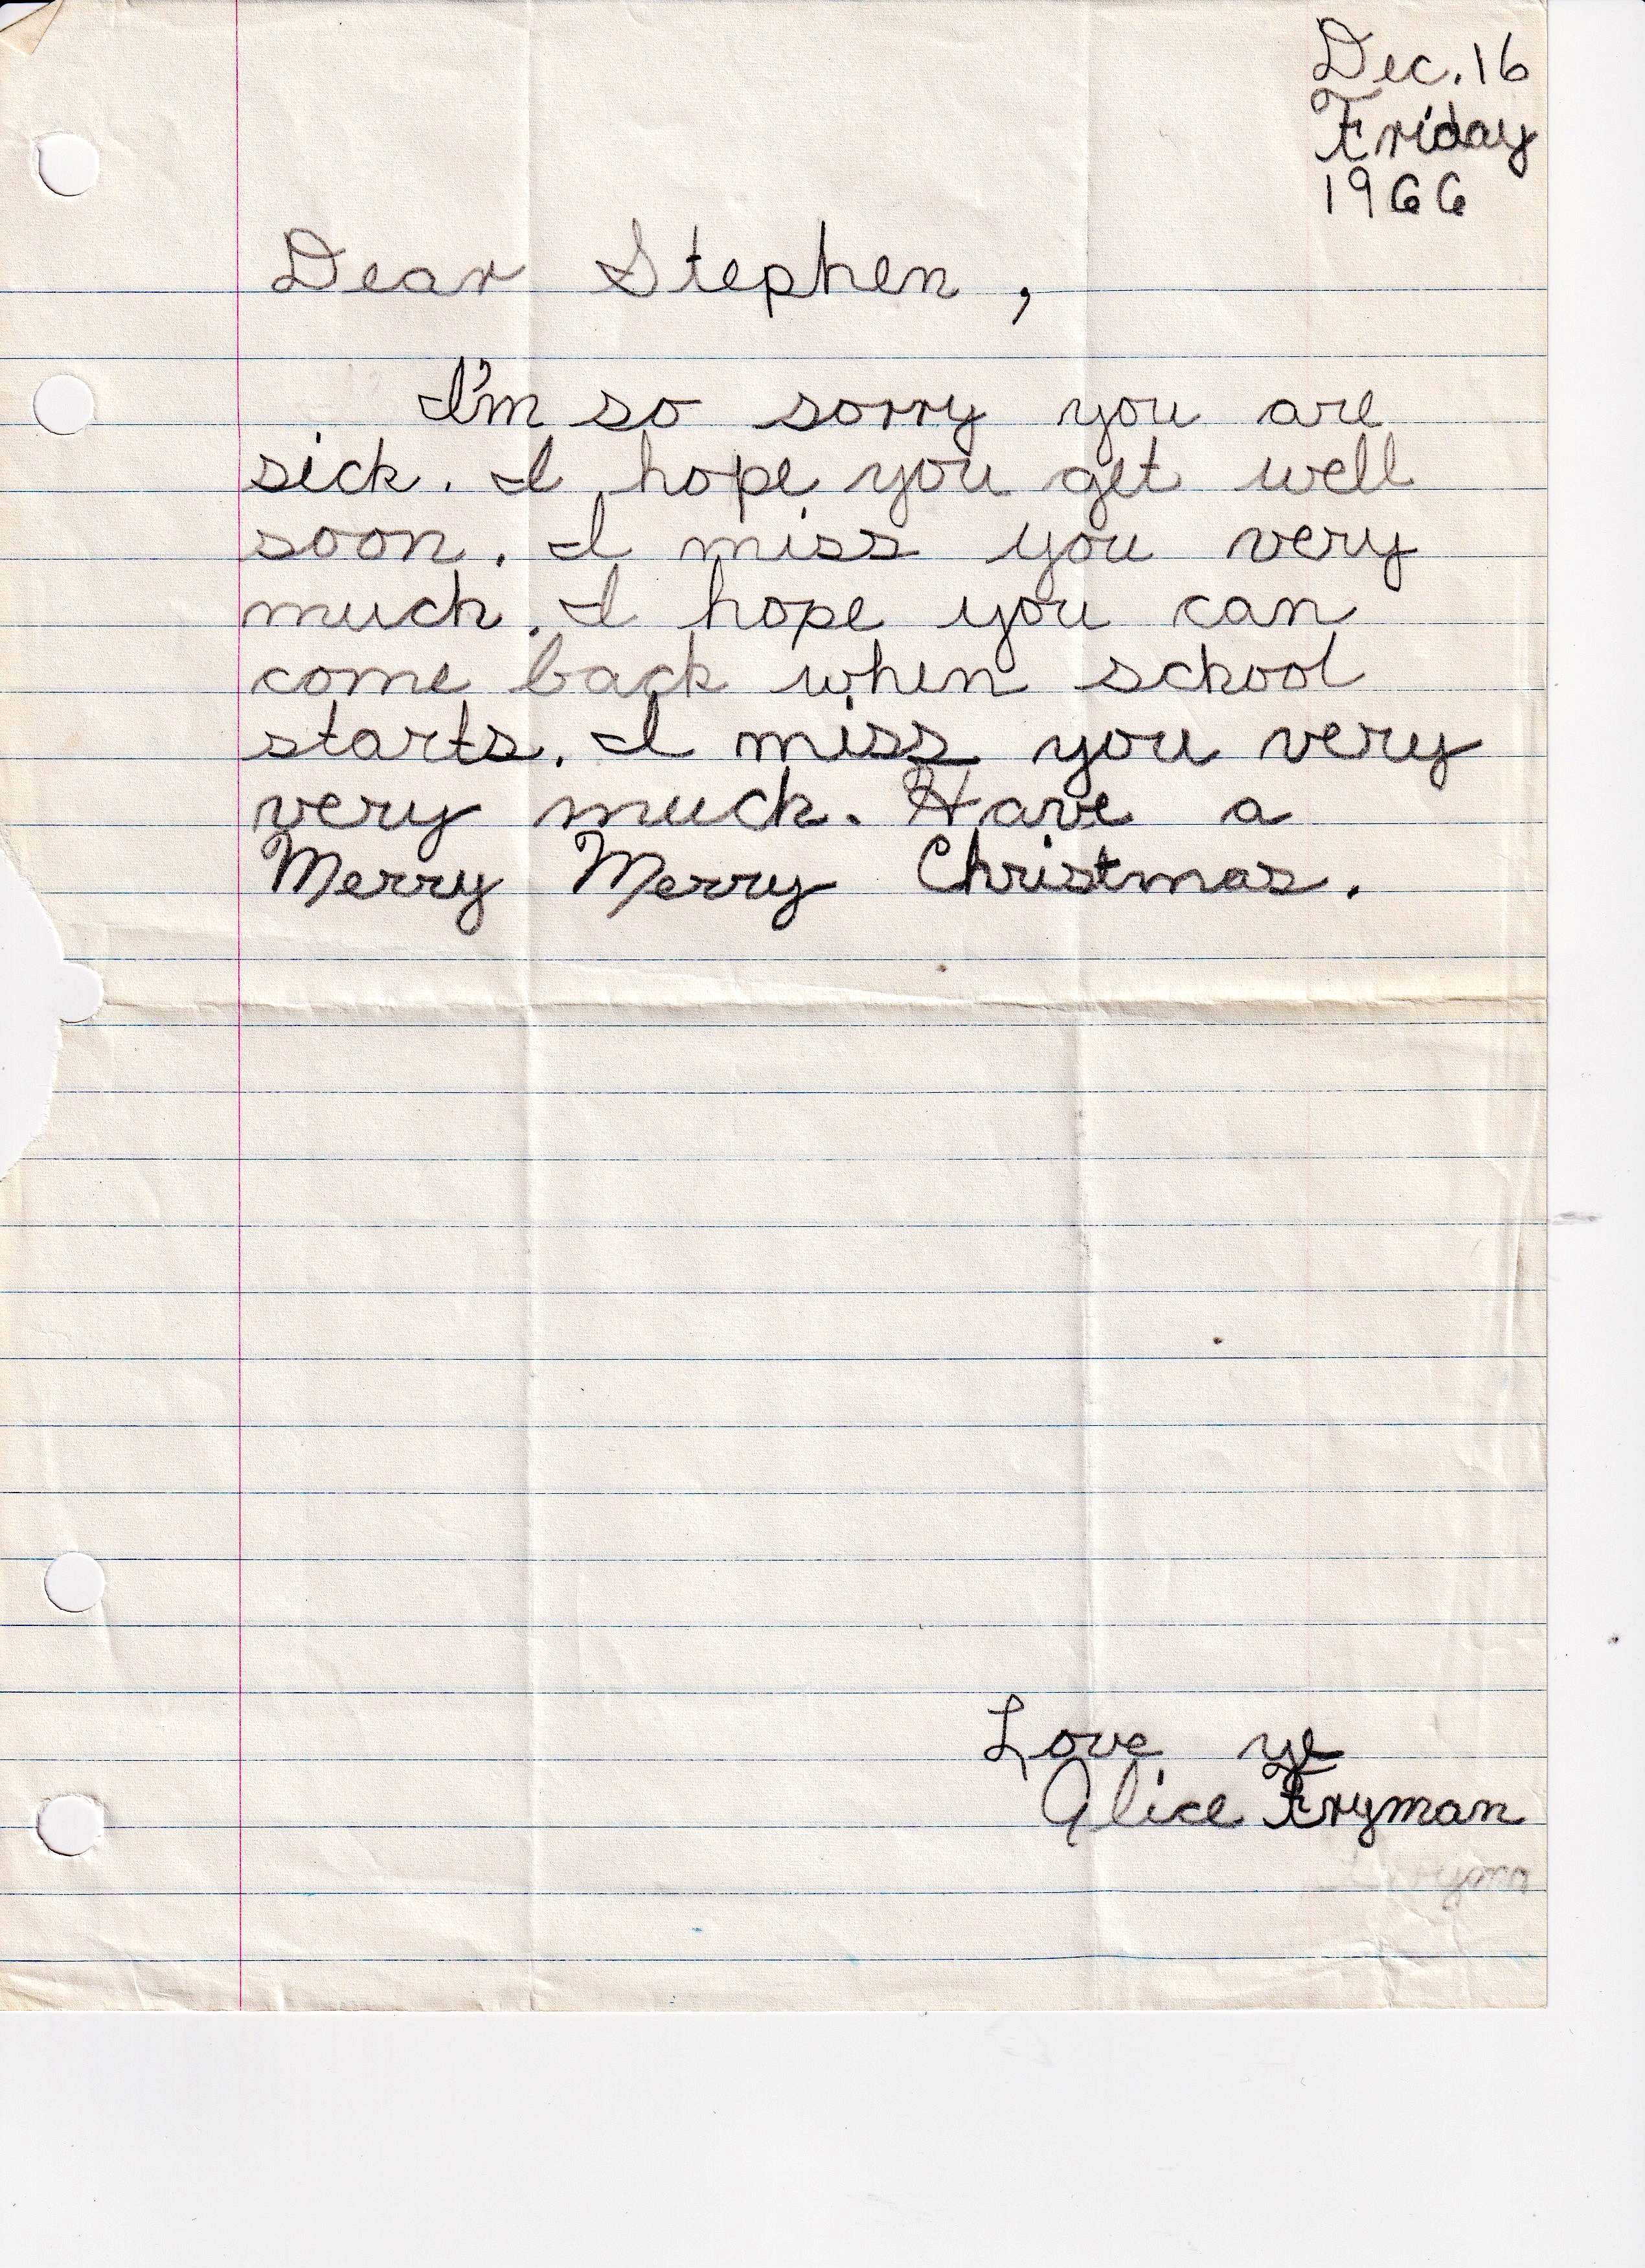 Dec. 16
Friday
1966
Dear Stephen,
I'm so sorry you are
sick. I hope you get well
soon. I miss you very
much. I hope you can
come back when school
starts. I miss you very
very much. Have a
Merry Merry Christmas.
Love ye
Alice Fryman